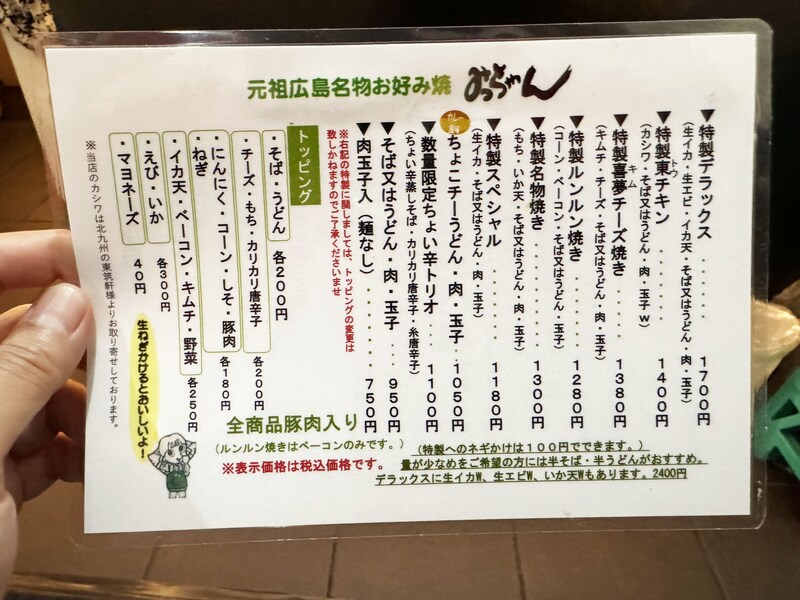 元祖広島名物お好み焼 みっちゃん
▼特製デラックス......1700円
(生イカ・生エビ・イカ天・そば又はうどん・肉・玉子)
▼特製東チキン......1400円
トウ
(カシワ・そば又はうどん・肉・玉子w)
▼特製喜夢チーズ焼き....1380円
キム
(キムチ・チーズ・そば又はうどん・肉・玉子)
▼特製ルンルン焼き.....1280円
(コーン・ベーコン・そば又はうどん・玉子)
▼特製名物焼き.......1300円
(もち・いか天・そば又はうどん・肉・玉子)
▼特製スペシャル......1180円
(生イカ・そば又はうどん・肉・玉子)
カレー
ちょこチーうどん・肉・玉子.1050円
▼数量限定ちょい辛トリオ...1100円
(ちょい辛蒸しそば・カリカリ唐辛子・糸唐辛子)
▼そば又はうどん・肉・玉子...950円
▼肉玉子入(麺なし)......750円
※右記の特製に関しましては、トッピングの変更は
致しかねますのでご了承くださいませ
トッピング
・そば・うどん 各200円
・チーズ・もち・カリカリ唐辛子 各200円
・にんにく・コーン・しそ・豚肉
・ねぎ 各180円
・イカ天・ベーコン・キムチ・野菜 各250円
・えび・いか 各300円
・マヨネーズ 40円
※当店のカシワは北九州の東筑軒様よりお取り寄せしております。
生ねぎかけるとおいしいよ!
全商品豚肉入り
(ルンルン焼きはベーコンのみです。)
(特製へのネギかけは100円でできます。)
※表示価格は税込価格です。
量が少なめをご希望の方には半そば・半うどんがおすすめ。
デラックスに生イカW、生エビW、いか天Wもあります。2400円